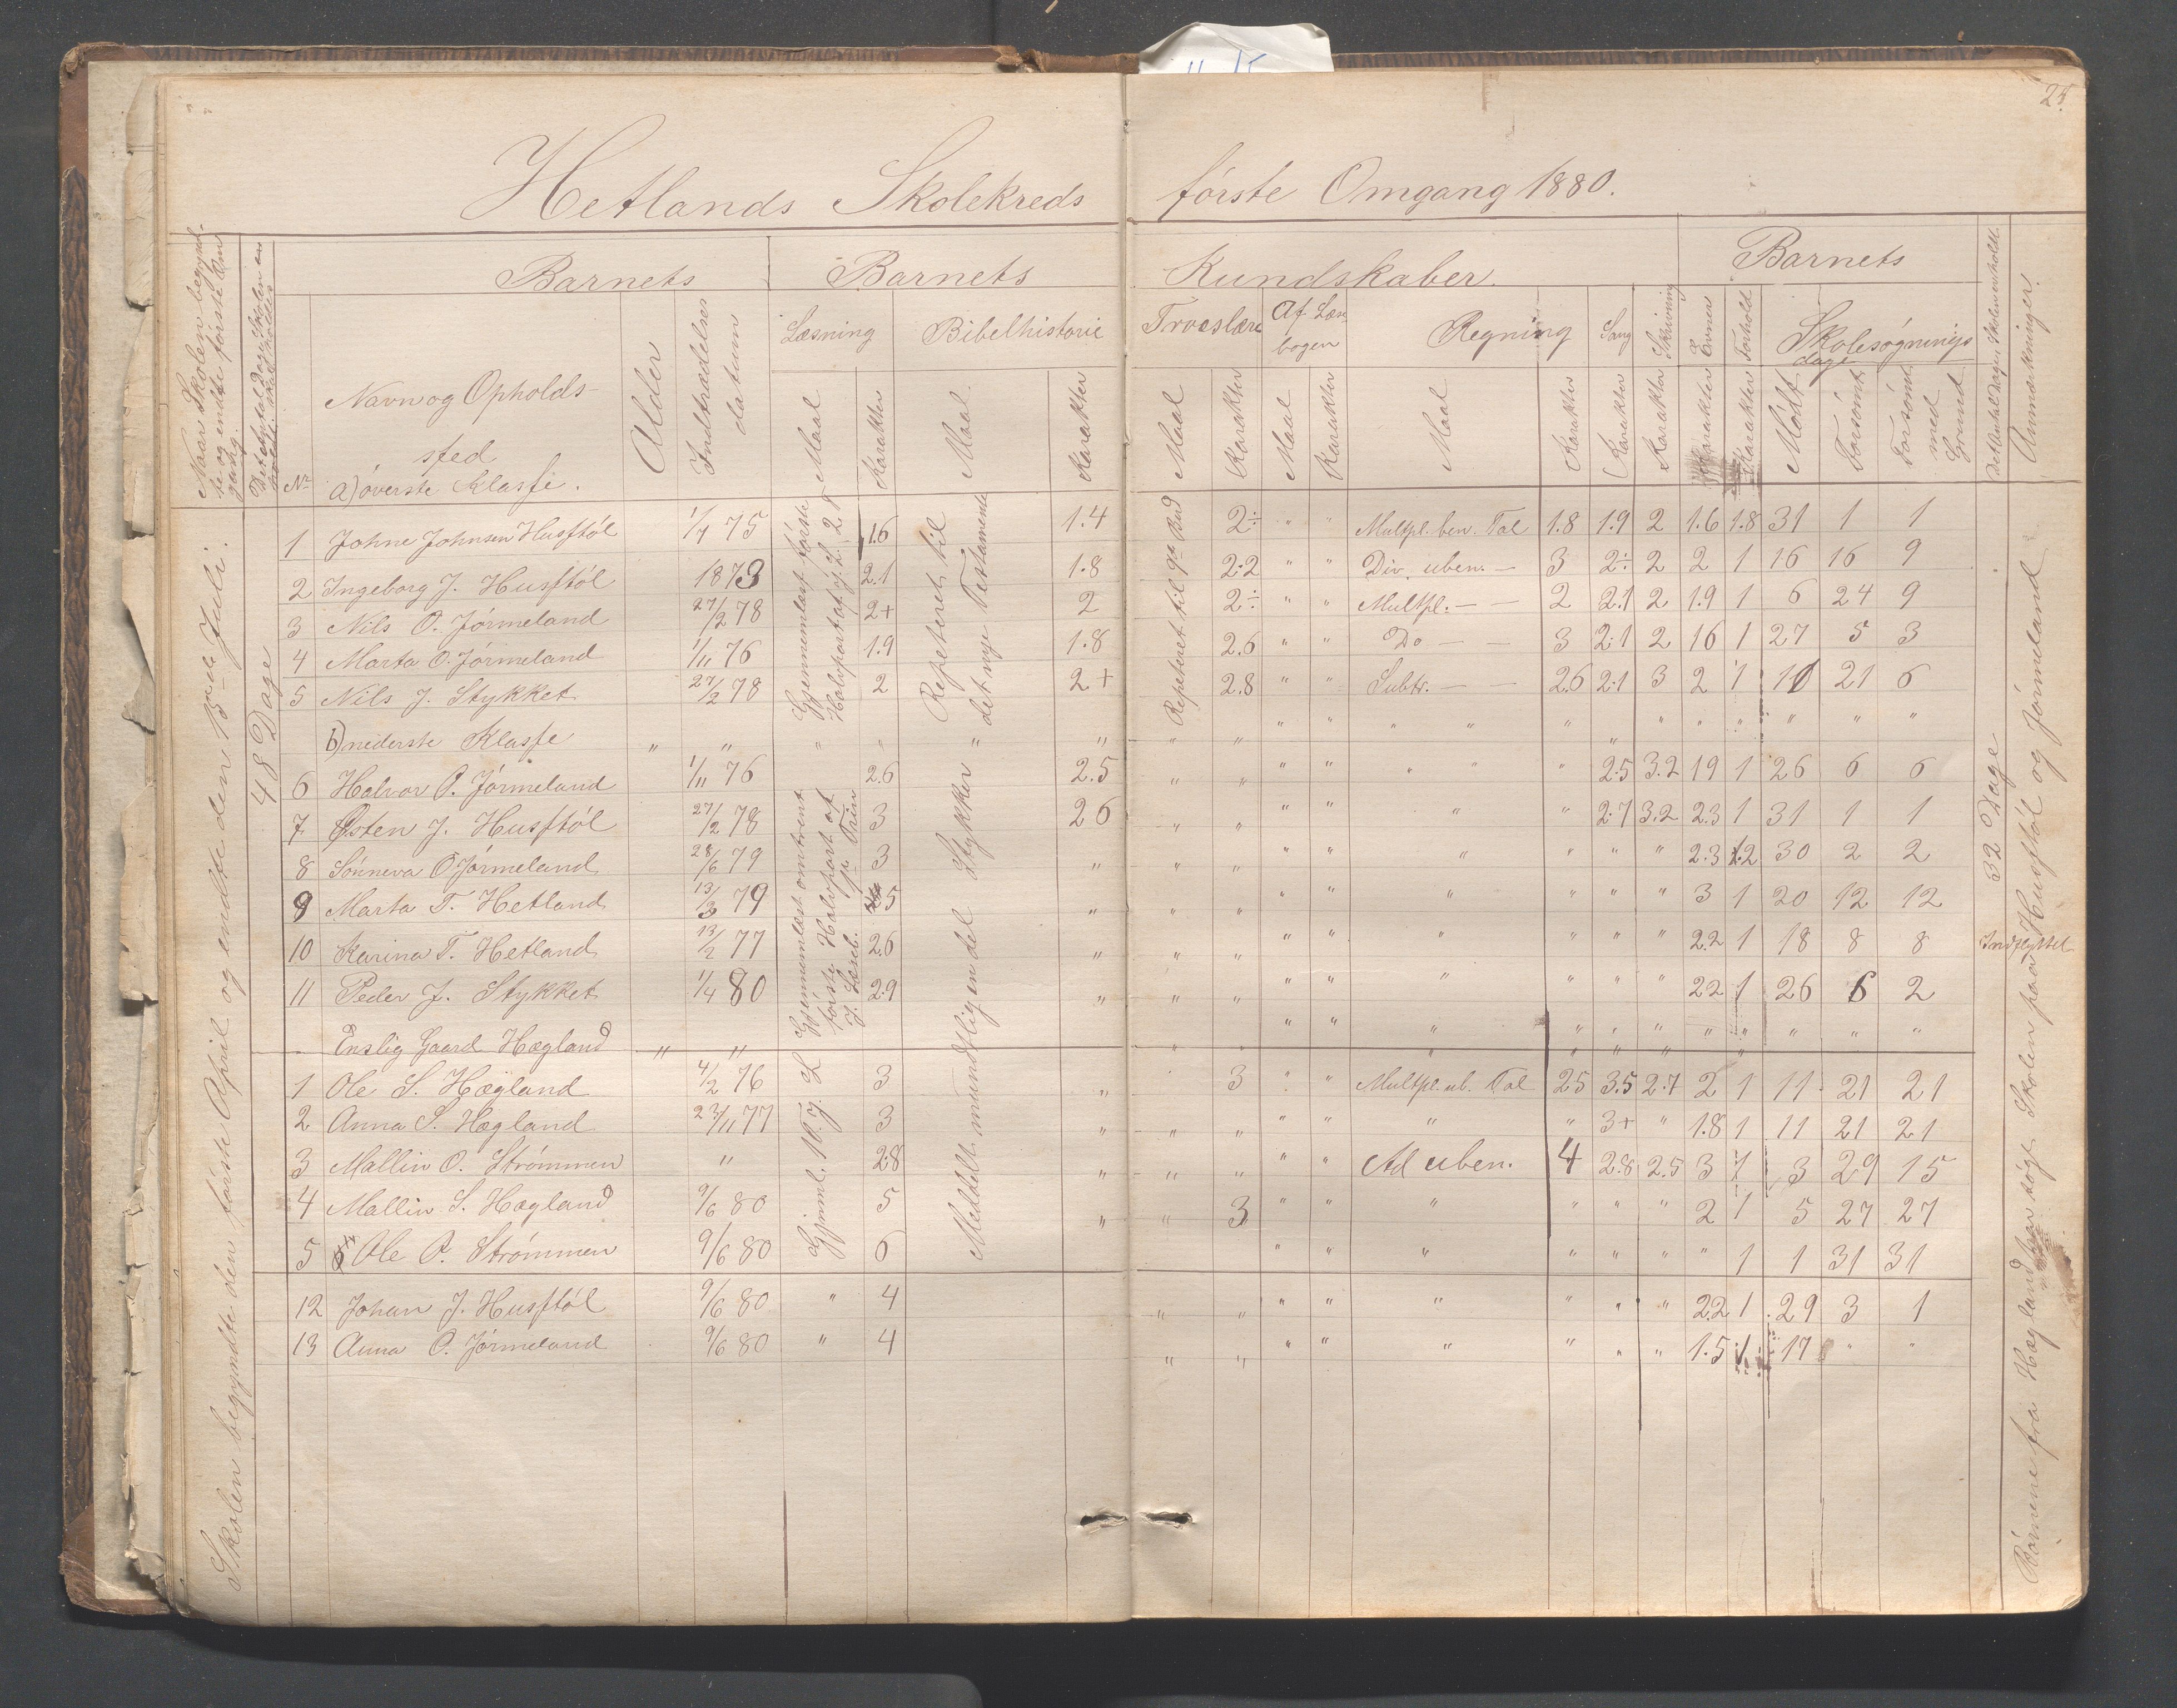 25.
Hetlands Skolekreds første Omgang 1880.
Naar Skolen begynd-
te og endte første Om
gang.
Det Antal Dage Skolen er
Barnets Barnets Kundskaber. Barnets
Det Antal Dage Skolen er holdt
Anmærkninger.
Læsning Bibelhistorie Troeslære Af Læse
bogen Regning Sang Skrivning Evner Forhold Skolesøgnings
dage
No Navn og Opholds-
sted Alder Indtrædelses
datum Maal Karakter Maal Karakter Maal Karakter Maal Karakter Maal Karakter Karakter Karakter Karakter Karakter Mødt Forsømt Forsømt
med
Grund
a) øverste Klasse.
Skolen begyndte den første April og endte den 15de Juli.
48 Dage
Gjennemlæst første
Halvpart af J. L. 2 T
Repeteret til
det nye Testamente
Repeteret til 9de Bud
1 Johne Johnsen Husstøl 1/7 75 1.6 1.4 2÷ " " Multpl. ben. Tal 1.8 1.9 2 1.6 1.8 31 1 1
2 Ingeborg J. Husstøl 1873 2.1 1.8 2.2 " " Div. uben. — 3 2÷ 2 2 1 16 16 9
3 Nils O. Jørmeland 27/2 78 2+ 2 2÷ " " Multpl. — — 2 2.1 2 1.9 1 6 24 9
4 Marta O. Jørmeland 1/11 76 1.9 1.8 2.6 " " Do — — 3 2.1 2 16 1 27 5 3
5 Nils J. Stykket 27/2 78 2 2+ 2.8 " " Subtr. — — 2.6 2.1 3 2 1 11 21 6
b) nederste Klasse " " " " " " " " " " " " " " " " " " " "
Gjennemlæst omtrent
første Halvpart af
J. Læseb. 1ste Trin
Meddelt mundtlig en del Stykker
6 Halvor O. Jørmeland 1/11 76 2.6 2.5 " " " " " " " 2.5 3.2 19 1 26 6 6
7 Østen J. Husstøl 27/2 78 3 26 " " " " " " 2.7 3.2 2.3 1 31 1 1
8 Sønneva O Jørmeland 28/6 79 3 " " " " " " " " " 2.3 1.2 30 2 2
9 Marta T. Hetland 13/3 79 5 " " " " " " " " " 3 1 20 12 12
10 Karina T. Hetland 13/2 77 2.6 " " " " " " " " " 2.2 1 18 8 8 Indflyttet
11 Peder J. Stykket 1/4 80 2.9 " " " " " " " " " 22 1 26 6 2
Enslig Gaard Hægland " " " " " " " " " " " " " " " "
Gjnml. 1 T. J. L
1 Ole S. Hægland 4/2 76 3 " 3 " " Multpl. ub. Tal 25 3.5 2.7 2 1 11 21 21
2 Anna S. Hægland 23/11 77 3 " " " " " " " 3+ " 1.8 1 11 21 21
3 Mallin O. Strømmen " 2.8 " " " " " Ad uben. 4 2.8 2.5 3 1 3 29 15
4 Mallin S. Hægland 9/6 80 5 " " 3 " " " " " " 2 1 5 27 27
5 Ole P. Strømmen 9/6 80 6 " " " " " " " 1 1 31 31
12 Johan J. Husstøl 9/6 80 " 4 " " " " " " " " 22 1 29 3 1
13 Anna O. Jørmeland 9/6 80 " 4 " " " " " " " " 1.5 1 17 " "
32 Dage
Børnene fra Hægland har søgt Skolen paa Husstøl og Jørmeland